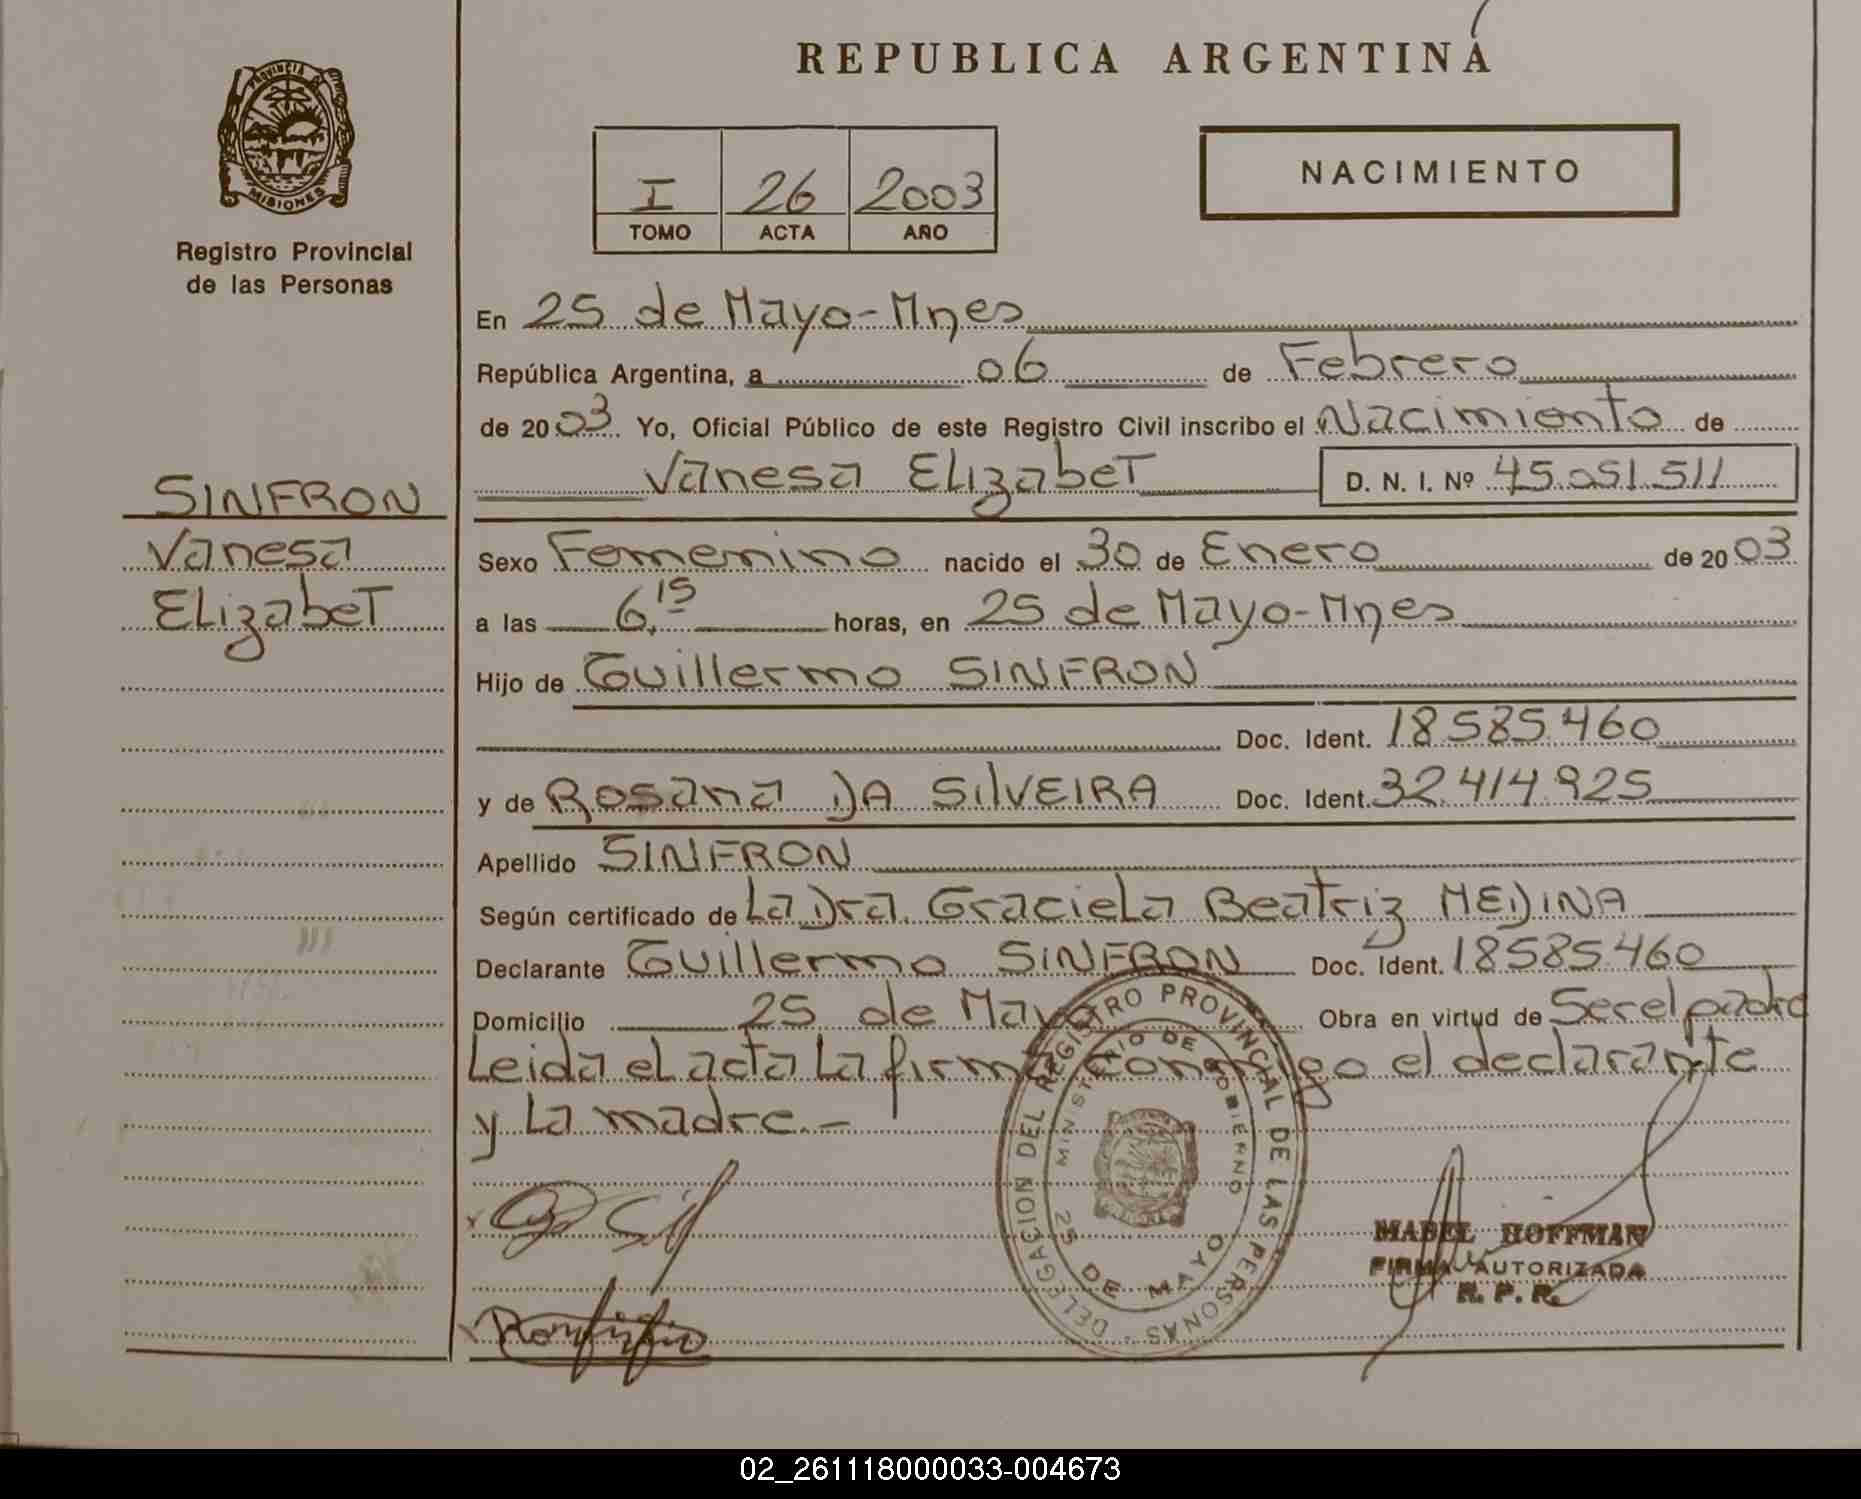 REPUBLICA ARGENTINA
PROVINCIA DE
MISIONES
Registro Provincial
de las Personas
I 26 2003
TOMO ACTA AÑO
NACIMIENTO
En 25 de Mayo-Mnes
República Argentina, a 06 de Febrero
de 2003 Yo, Oficial Público de este Registro Civil inscribo el Nacimiento de
Vanesa Elizabet D. N. I. Nº 45.051.511
SINFRON
Vanesa
Elizabet
Sexo Femenino nacido el 30 de Enero de 2003
a las 6,15 horas, en 25 de Mayo-Mnes
Hijo de Guillermo SINFRON
Doc. Ident. 18585460
y de Rosana DA SILVEIRA Doc. Ident. 32414925
Apellido SINFRON
Según certificado de La Dra. Graciela Beatriz MEDINA
Declarante Guillermo SINFRON Doc. Ident. 18585460
Domicilio 25 de Mayo Obra en virtud de Ser el padre
Leida el acta La firma conmigo el declarante
y La madre.-
DELEGACION DEL REGISTRO PROVINCIAL DE LAS PERSONAS
MINISTERIO DE GOBIERNO
25 DE MAYO
MABEL HOFFMAN
FIRMA AUTORIZADA
R. P. R.
02_261118000033-004673